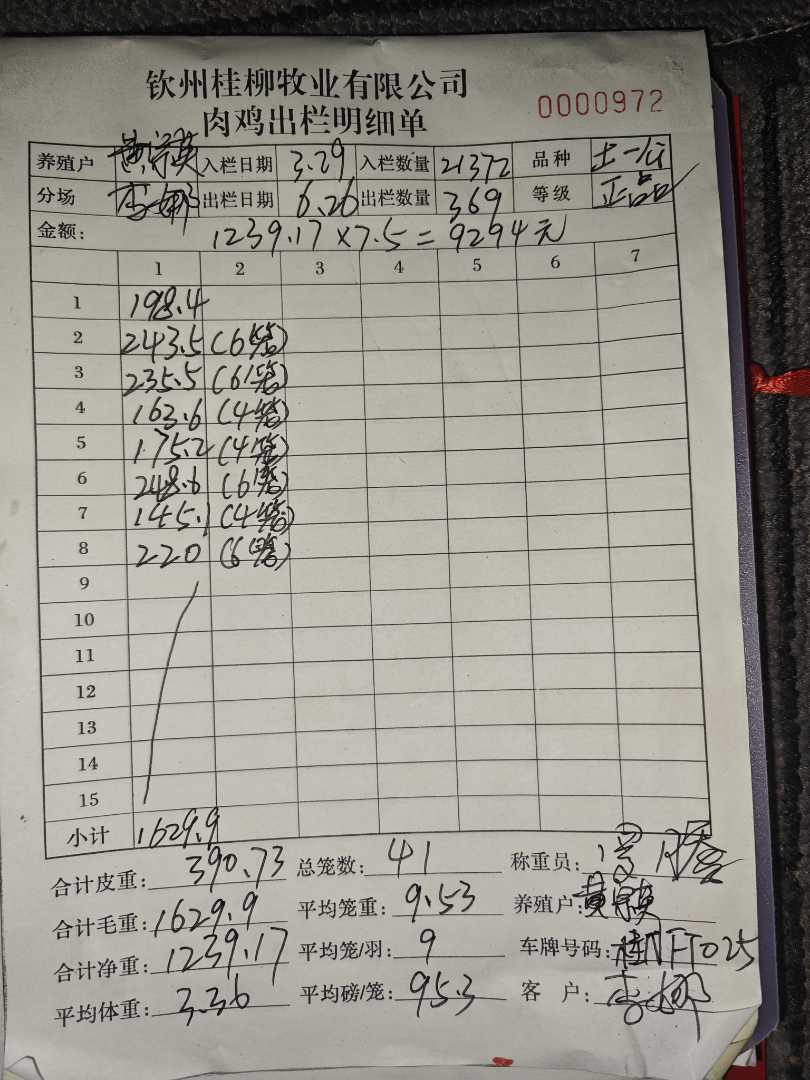 钦州桂柳牧业有限公司
肉鸡出栏明细单 0000972
养殖户 黄 入栏日期 3.29 入栏数量 21372 品种 土一公
分场 李娜 出栏日期 6.26 出栏数量 369 等级 正品
金额: 1239.17×7.5=9294元
1 2 3 4 5 6 7
1 198.4
2 243.5 (6笼)
3 235.5 (6笼)
4 163.6 (4笼)
5 175.2 (4笼)
6 248.6 (6笼)
7 145.1 (4笼)
8 220 (6笼)
9
10
11
12
13
14
15
小计 1629.9
合计皮重: 390.73 总笼数: 41 称重员:
合计毛重: 1629.9 平均笼重: 9.53 养殖户: 黄
合计净重: 1239.17 平均笼/羽: 9 车牌号码: 桂NFT025
平均体重: 3.36 平均磅/笼: 95.3 客 户: 李娜